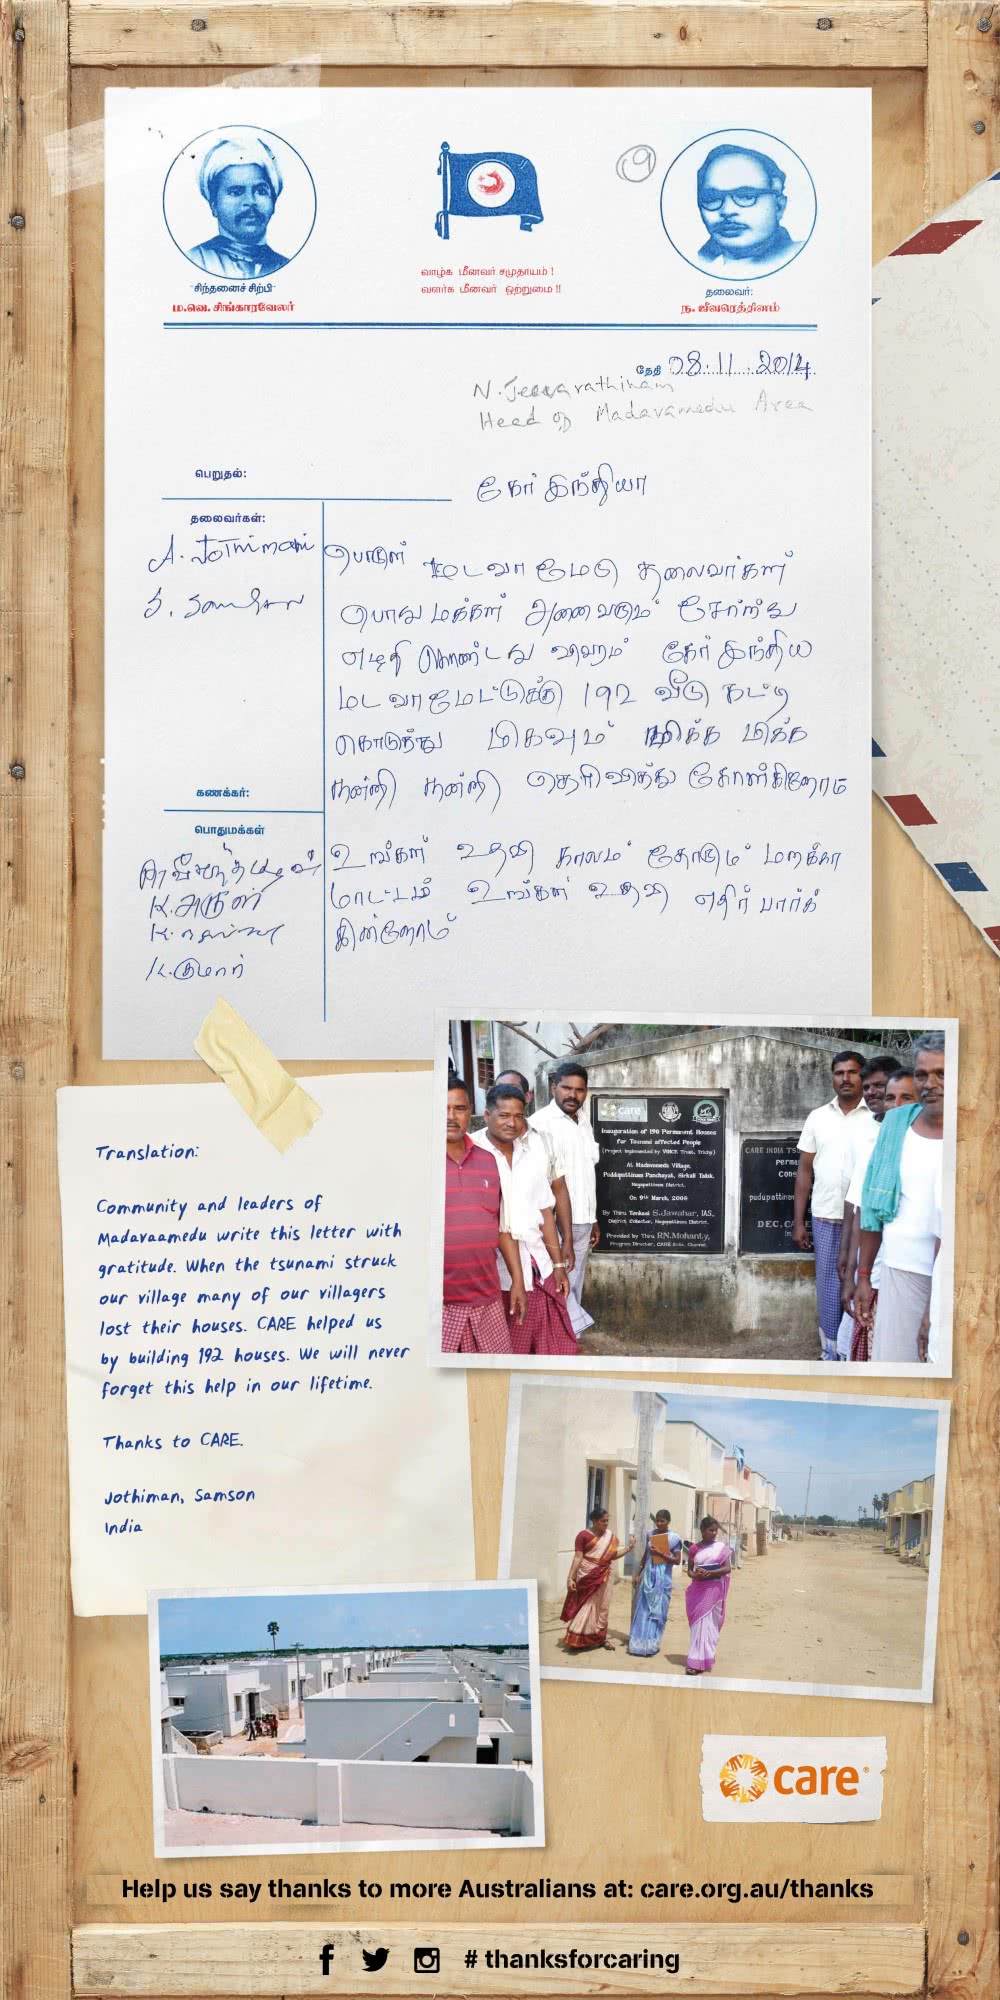 சிந்தனைச் சிற்பி
ம.வெ. சிங்காரவேலர்
வாழ்க மீனவர் சமுதாயம் !
வளர்க மீனவர் ஒற்றுமை !!
தலைவர்:
ந. ஜீவரெத்தினம்
தேதி 08.11.2014
N. Jeevarathinam
Head of Madavamedu Area
பெறுதல்:
கேர் இந்தியா
தலைவர்கள்:
A. Jothimani
S. Samson
பொருள் மடவா மேடு தலைவர்கள்
பொது மக்கள் அனைவரும் சேர்ந்து
எழுதி கொண்டது கேர் இந்திய
மடவாமேட்டுக்கு 192 வீடு கட்டி
கொடுத்து மிகவும் மிக்க மிக்க
நன்றி நன்றி தெரிவித்து கொள்கிறோம்
உங்கள் உதவி காலம் தோறும் மறக்கா
மாட்டம் உங்கள் உதவி எதிர் பார்க்
கின்றோம்
கணக்கர்:
பொதுமக்கள்
K. அருள்
K. குமார்
care
Inauguration of 190 Permanent Houses
for Tsunami affected People
(Project Implemented by VOICE Trust, Trichy)
At Madavamedu Village,
Puddupattinam Panchayat, Sirkali Taluk,
Nagapattinam District.
On 9th March, 2008
By Thiru Tenkasi S.Jawahar, IAS.,
District Collector, Nagapattinam District.
Provided by Thiru RN.Mohanty,
Program Director, CARE India, Chennai.
CARE INDIA TSU
perma
cons
pudupattina
DEC, CA
Translation:
Community and leaders of
Madavaamedu write this letter with
gratitude. When the tsunami struck
our village many of our villagers
lost their houses. CARE helped us
by building 192 houses. We will never
forget this help in our lifetime.
Thanks to CARE.
Jothiman, Samson
India
care®
Help us say thanks to more Australians at: care.org.au/thanks
# thanksforcaring